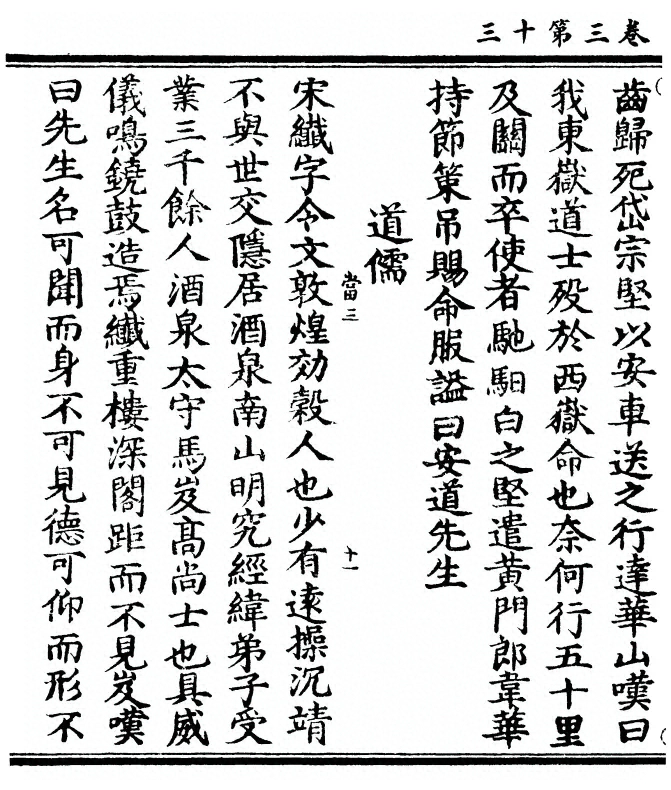 卷三第十三
齒歸死岱宗堅以安車送之行達華山嘆曰
我東嶽道士歿於西嶽命也奈何行五十里
及關而卒使者馳馹白之堅遣黃門郎韋華
持節策吊賜命服謚曰安道先生
道儒
當三
十一
宋纖字令文敦煌効榖人也少有遠操沉靖
不與世交隱居酒泉南山明究經緯弟子受
業三千餘人酒泉太守馬岌髙尚士也具威
儀鳴鐃鼓造焉纖重樓深閣距而不見岌嘆
曰先生名可聞而身不可見德可仰而形不